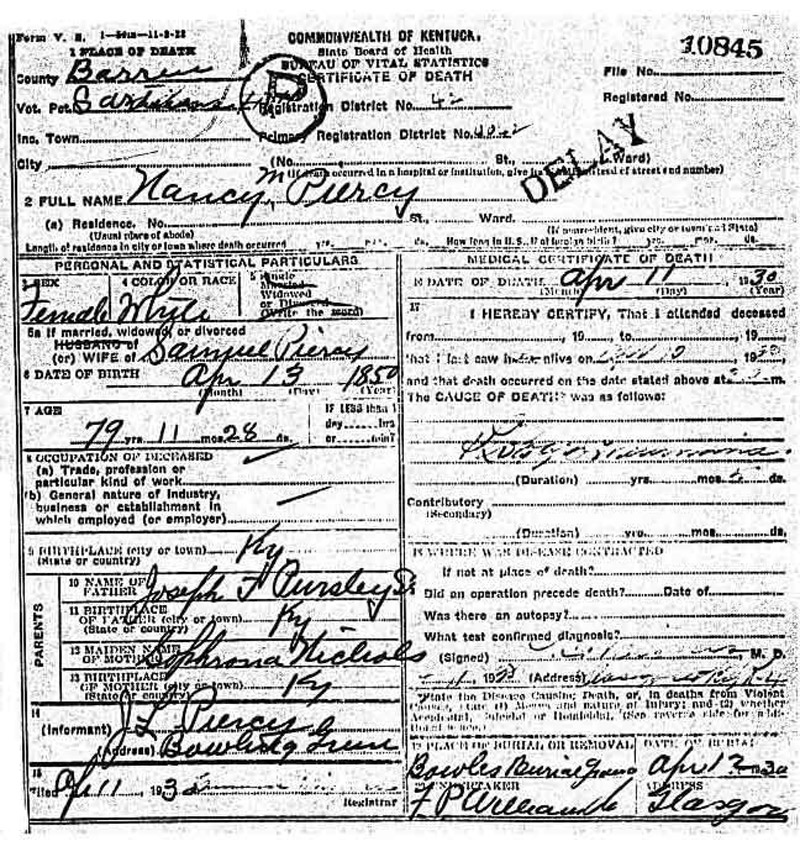 Form V. S. 1
COMMONWEALTH OF KENTUCKY
State Board of Health
BUREAU OF VITAL STATISTICS
CERTIFICATE OF DEATH
10845
1 PLACE OF DEATH
County Barren
File No.
Vot. Pct.
Registration District No. 42
Registered No.
Inc. Town
Primary Registration District No.
City
(No. St., Ward)
(If death occurred in a hospital or institution, give its instead of street and number)
DELAY
2 FULL NAME Nancy M Piercy
(a) Residence. No. St. Ward.
(Usual place of abode) (If nonresident, give city or town and State)
Length of residence in city or town where death occurred yrs. mos. ds. How long in U. S., if of foreign birth? yrs. mos. ds.
PERSONAL AND STATISTICAL PARTICULARS
3 SEX 4 COLOR OR RACE 5 Single Married Widowed or Divorced (Write the word)
Female White
5a If married, widowed, or divorced
HUSBAND of
(or) WIFE of Samuel Piercy
6 DATE OF BIRTH Apr 13 1850
(Month) (Day) (Year)
7 AGE IF LESS than 1
79 yrs. 11 mos. 28 ds. day hrs or min?
8 OCCUPATION OF DECEASED
(a) Trade, profession or
particular kind of work
(b) General nature of industry,
business or establishment in
which employed (or employer)
9 BIRTHPLACE (city or town) Ky
(State or country)
PARENTS
10 NAME OF FATHER Joseph F Pursley Sr
11 BIRTHPLACE OF FATHER (city or town) Ky
(State or country)
12 MAIDEN NAME OF MOTHER Sophrona Nichols
13 BIRTHPLACE OF MOTHER (city or town) Ky
(State or country)
14
(Informant) J L Piercy
(Address) Bowling Green
15
Filed 11, 193
Registrar
MEDICAL CERTIFICATE OF DEATH
16 DATE OF DEATH Apr 11 1930
(Month) (Day) (Year)
17
I HEREBY CERTIFY, That I attended deceased
from , 19 , to , 19 ,
that I last saw alive on , 1930
and that death occurred on the date stated above at m.
The CAUSE OF DEATH was as follows:
(Duration) yrs. mos. ds.
Contributory
(Secondary)
(Duration) yrs. mos. ds.
18 WHERE WAS DISEASE CONTRACTED
If not at place of death?
Did an operation precede death? Date of
Was there an autopsy?
What test confirmed diagnosis?
(Signed) M. D.
(Address)
State the Disease Causing Death, or, in deaths from Violent
Causes, state (1) Means and nature of Injury; and (2) whether
Accidental, Suicidal or Homicidal. (See reverse side for
19 PLACE OF BURIAL OR REMOVAL DATE OF BURIAL
Bowles Burial Apr 12 1930
20 UNDERTAKER ADDRESS
Glasgow